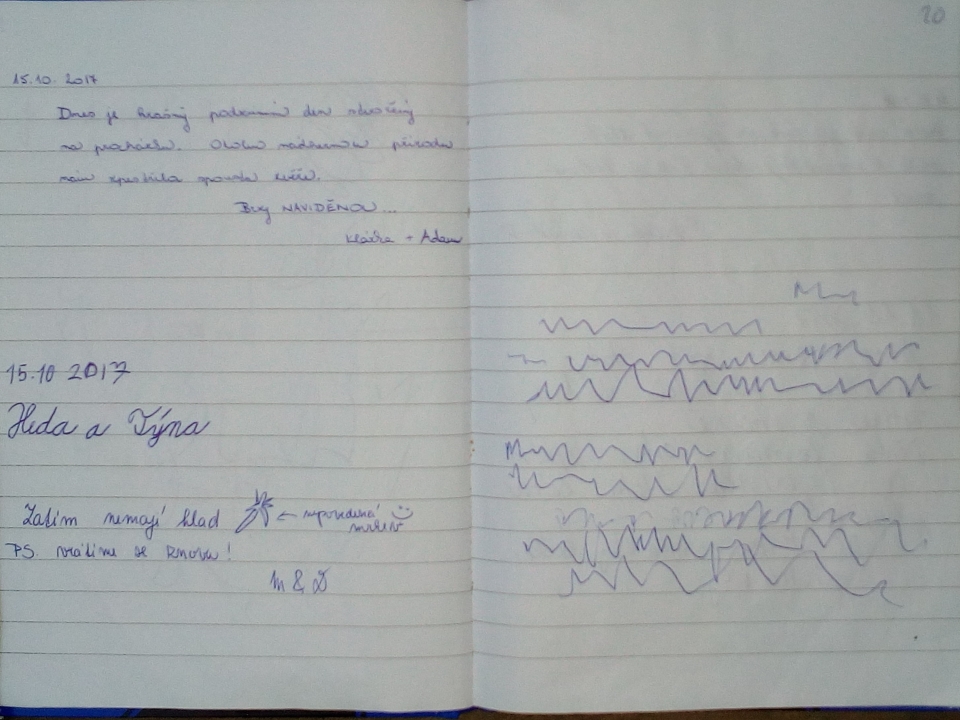 20
15.10. 2017
Dnes je krásný podzimní den stvořený
na procházku. Okolní nádhernou přírodu
nám zpestřila spousta zvěře.
BRZY NAVIDĚNOU...
Klárka + Adam
15.10 2017
Heda a Týna
Zatím nemají hlad ← nepovedená
PS. vrátíme se znovu!
M & D